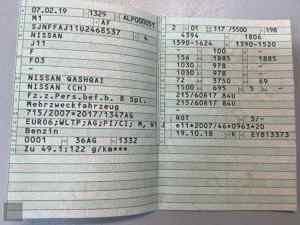 07.02.19 1329 ALP000051
M1 AF
SJNFFAJ11U2468537
NISSAN 4
J11
F
F03
-
NISSAN QASHQAI
NISSAN (CH)
Fz.z.Pers.bef.b. 8 Spl.
Mehrzweckfahrzeug
715/2007*2017/1347AG
EURO6;WLTP;AG;PI/CI; M,
Benzin
0001 36AG 1332
Zu 49.1:122 g/km***
2 01 117/5500 198
4394 1806
1590-1624 1390-1520
156 1885 1885
1030 978 -
1030 978 -
72 3750 69
1500 695 5 -
215/60R17 84U
215/60R17 84U
-
ROT 5/-
e11*2007/46*0963*20
19.10.18 K EY813373